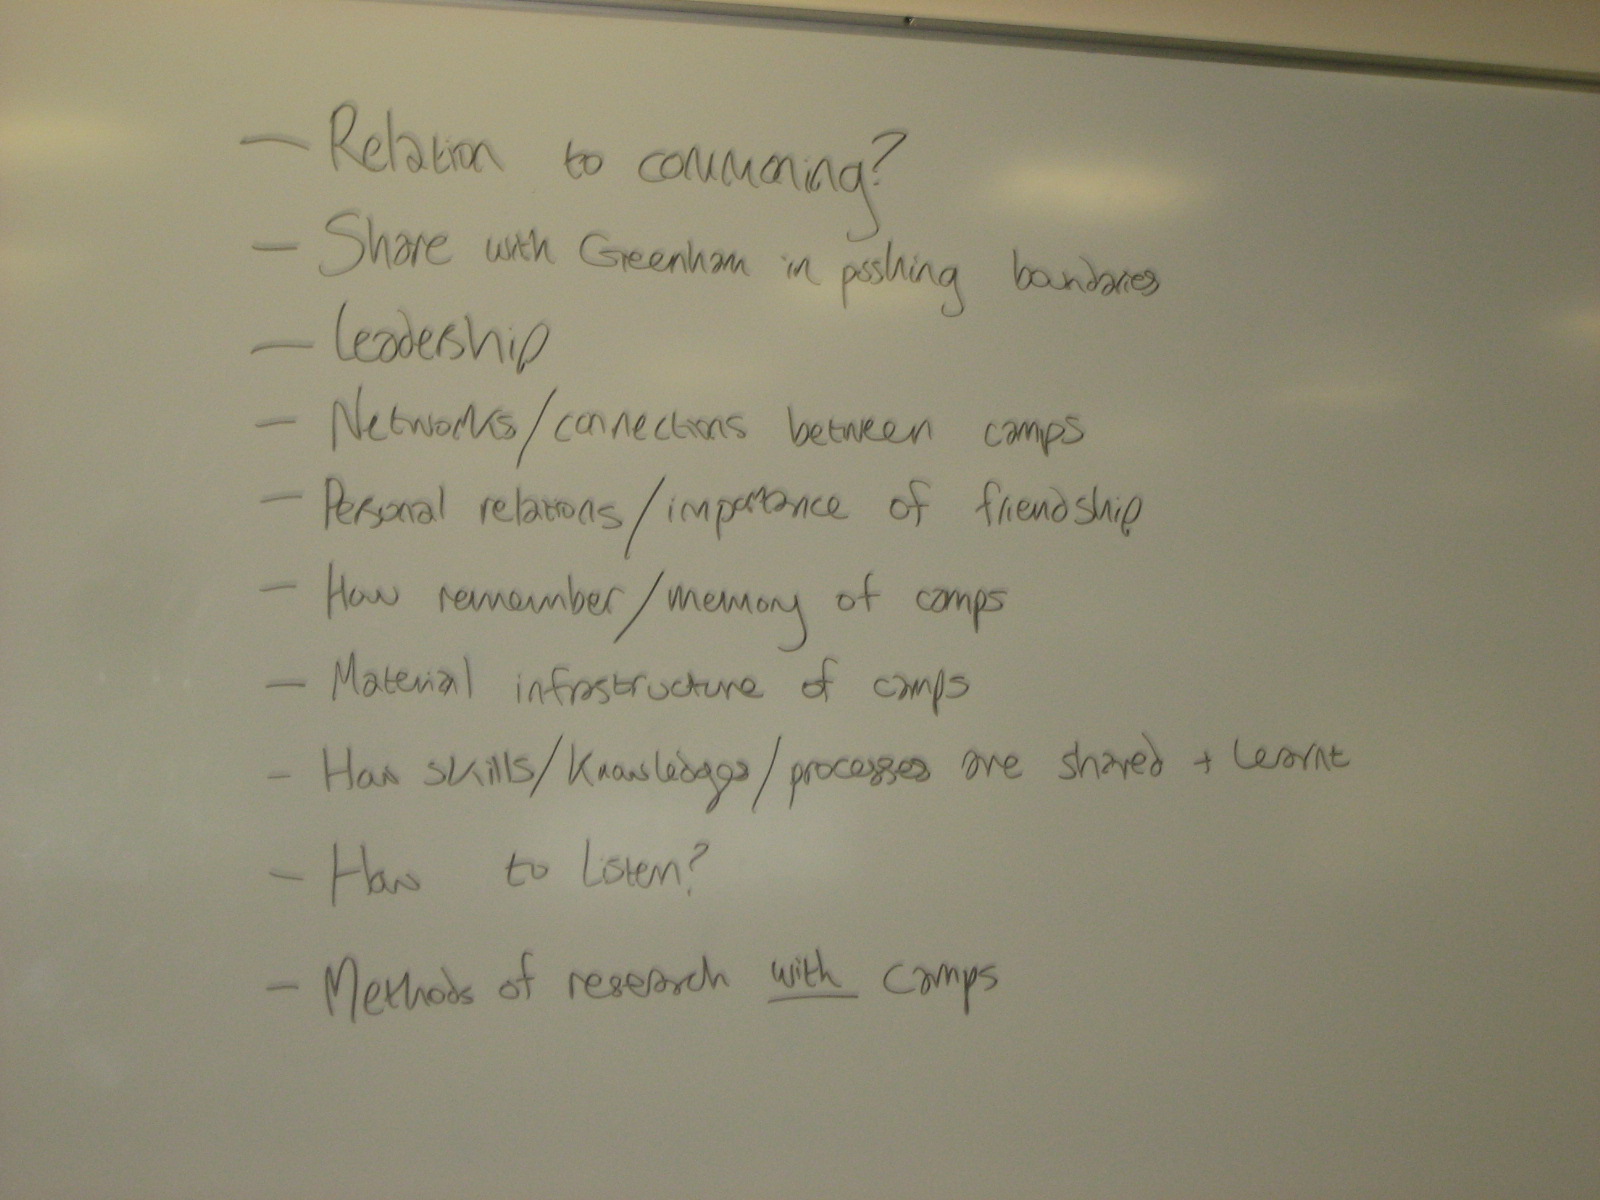 – Relation to commoning?
– Share with Greenham in pushing boundaries
– Leadership
– Networks/connections between camps
– Personal relations/importance of friendship
– How remember/memory of camps
– Material infrastructure of camps
– How skills/knowledge/processes are shared + learnt
– How to listen?
– Methods of research with camps